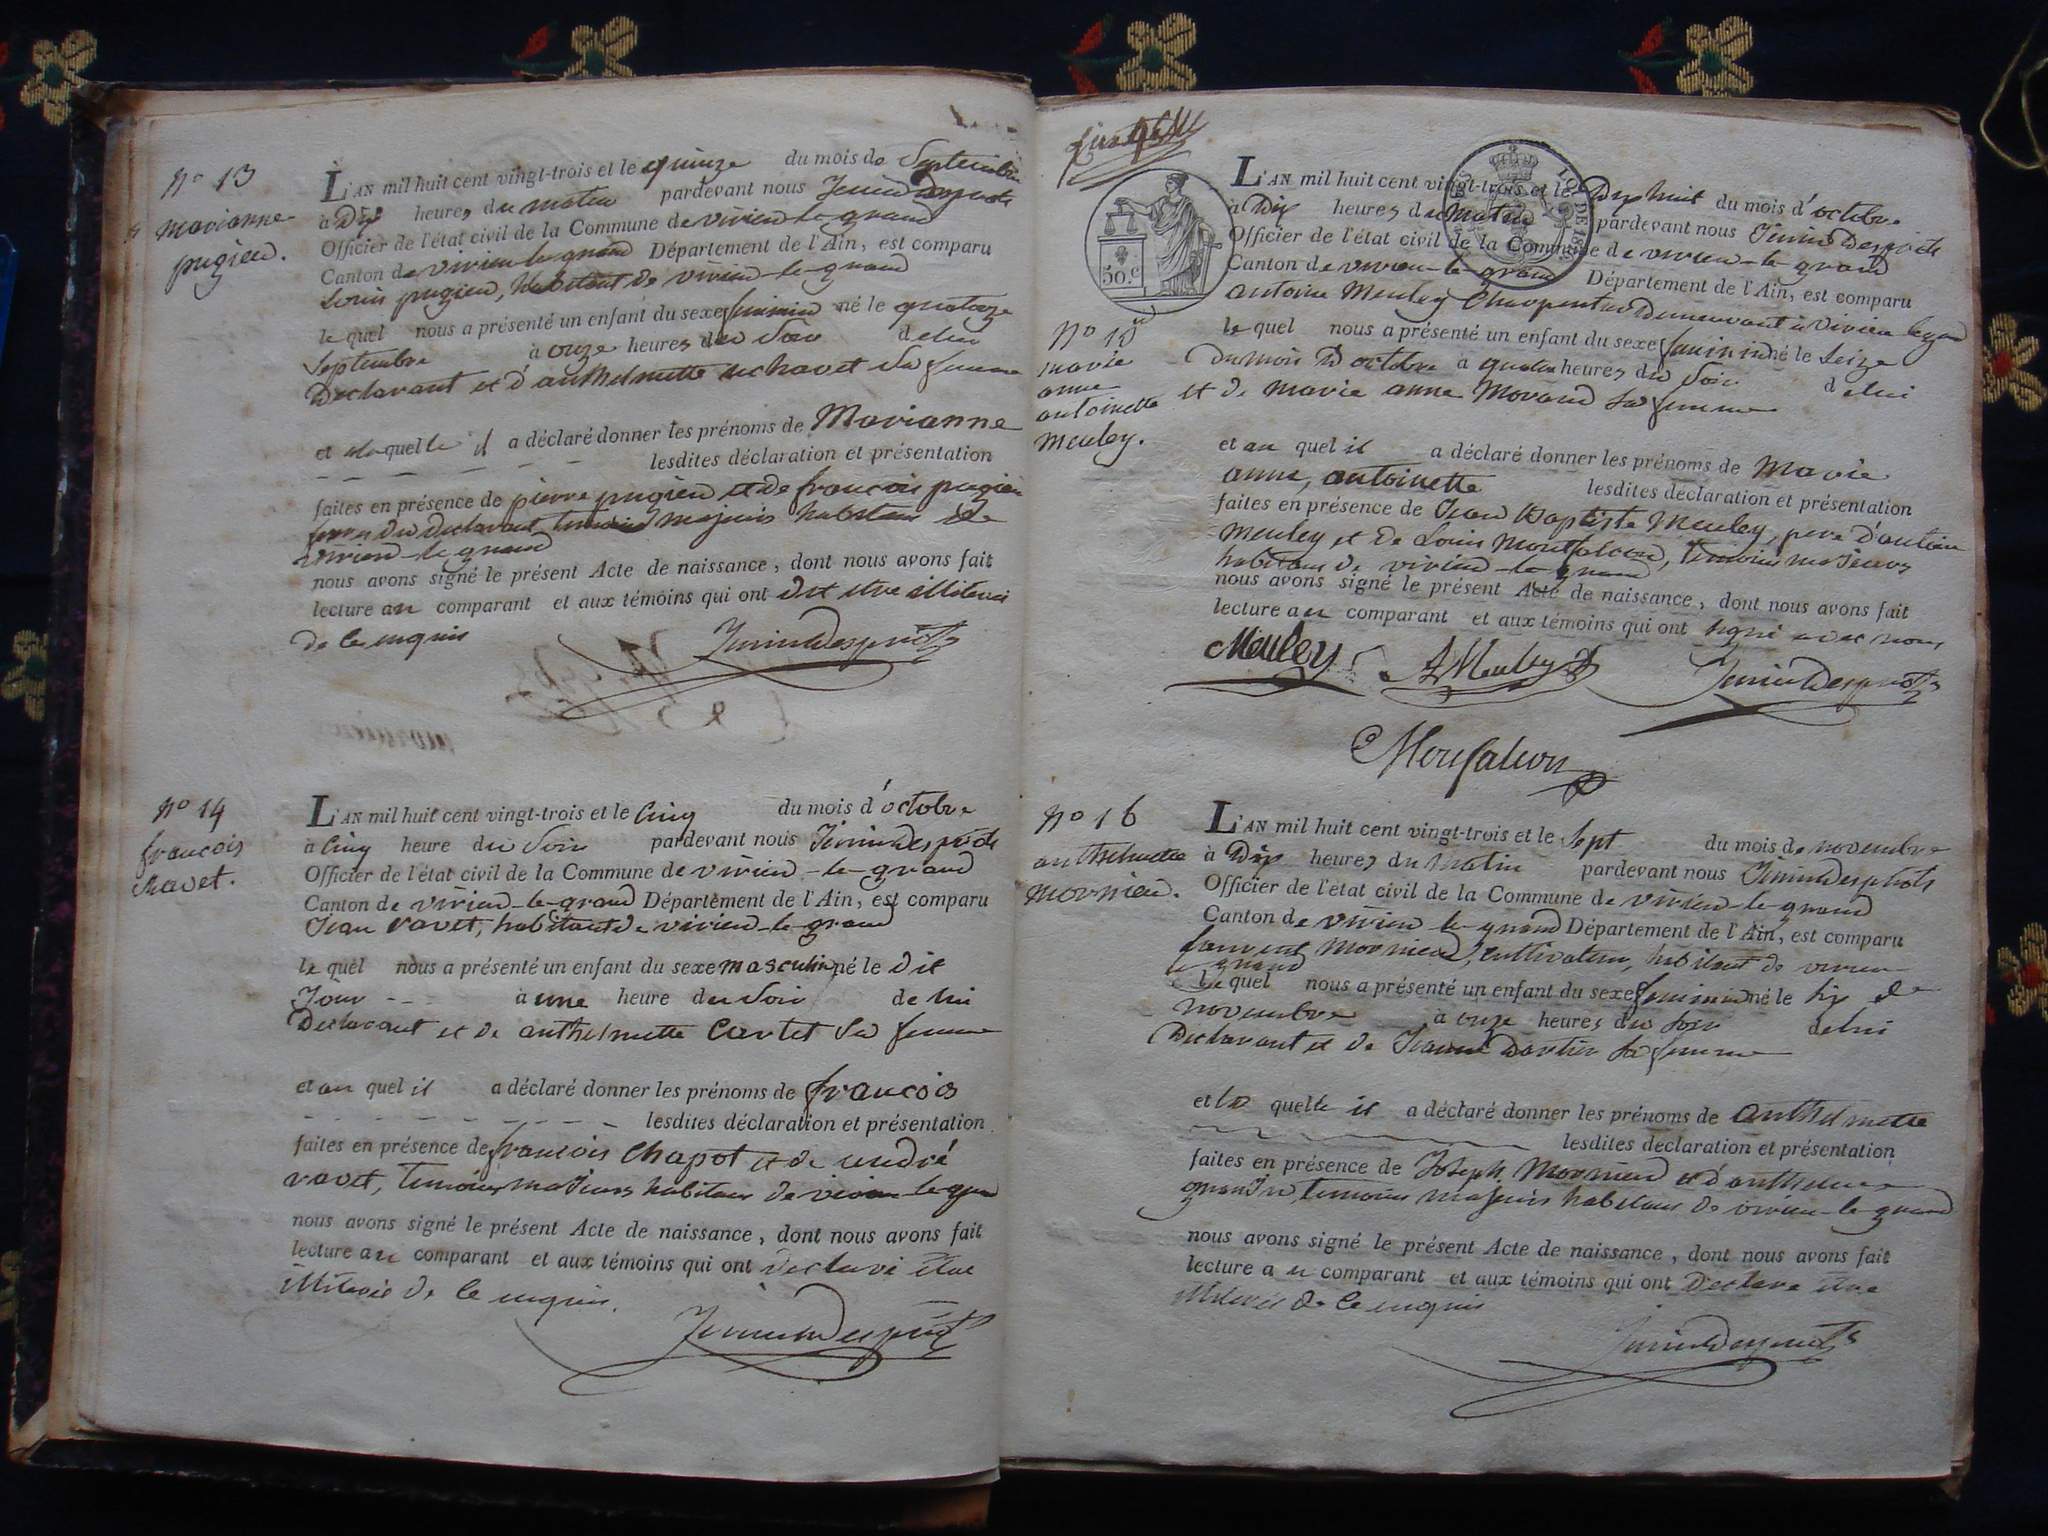 N° 13
marianne
pugieu.
L'AN mil huit cent vingt-trois et le quinze du mois de Septembre
à Dix heures du matin pardevant nous
Officier de l'état civil de la Commune de virieu-le-grand
Canton de virieu-le-grand Département de l'Ain, est comparu
Louis pugieu, habitant de virieu-le-grand
le quel nous a présenté un enfant du sexe feminin né le quatorze
Septembre à onze heures du Soir de lui
Declarant et d'anthelmette chavet Sa femme
et a laquelle il a déclaré donner les prénoms de Marianne
lesdites déclaration et présentation
faites en présence de pierre pugieu et de francois pugieu
du declarant, temoins majeurs habitans de
virieu-le-grand
nous avons signé le présent Acte de naissance, dont nous avons fait
lecture au comparant et aux témoins qui ont dit etre illiterés
de ce enquis
N° 14
francois
Ravet.
L'AN mil huit cent vingt-trois et le Cinq du mois d'octobre
à Cinq heure du Soir pardevant nous
Officier de l'état civil de la Commune de virieu-le-grand
Canton de virieu-le-grand Département de l'Ain, est comparu
Jean ravet, habitant de virieu-le-grand
le quel nous a présenté un enfant du sexe masculin né le dit
Jour à une heure du Soir de lui
Declarant et de anthelmette Cartet Sa femme
et au quel il a déclaré donner les prénoms de francois
lesdites déclaration et présentation
faites en présence de francois Chapot et de andré
ravet, temoins majeurs habitans de virieu-le-grand
nous avons signé le présent Acte de naissance, dont nous avons fait
lecture au comparant et aux témoins qui ont declaré etre
illiterés de ce enquis.
50.c
N° 15
marie
anne
antoinette
Meuley.
L'AN mil huit cent vingt-trois et le Dix huit du mois d'octobre
à Dix heures du matin pardevant nous
Officier de l'état civil de la Commune de virieu-le-grand
Canton de virieu-le-grand Département de l'Ain, est comparu
antoine Meuley Charpentier Demeurant à Virieu legrand
le quel nous a présenté un enfant du sexe feminin né le Seize
Du mois D'octobre à quatre heures du Soir de lui
et de marie anne Morand sa femme
et au quel il a déclaré donner les prénoms de Marie
anne, antoinette lesdites déclaration et présentation
faites en présence de Jean Baptiste Meuley, pere d'antoine
Meuley et de Louis Montfalcon, temoins majeurs
habitans de virieu-le-grand
nous avons signé le présent Acte de naissance, dont nous avons fait
lecture au comparant et aux témoins qui ont signé avec nous
Meuley A Meuley
Monfalcon
N° 16
anthelmette
Mornieu.
L'AN mil huit cent vingt-trois et le Sept du mois de novembre
à Dix heures du Matin pardevant nous
Officier de l'état civil de la Commune de virieu-le-grand
Canton de virieu-le-grand Département de l'Ain, est comparu
Laurent Mornieu, cultivateur, habitant de virieu-
le-grand
le quel nous a présenté un enfant du sexe feminin né le Six de
novembre à onze heures du Soir de lui
Declarant et de Jeanne Sa femme
et la quelle il a déclaré donner les prénoms de anthelmette
lesdites déclaration et présentation
faites en présence de Joseph Mornieu et d'anthelme
temoins majeurs habitans de virieu-le-grand
nous avons signé le présent Acte de naissance, dont nous avons fait
lecture au comparant et aux témoins qui ont Declaré etre
illiterés de ce enquis